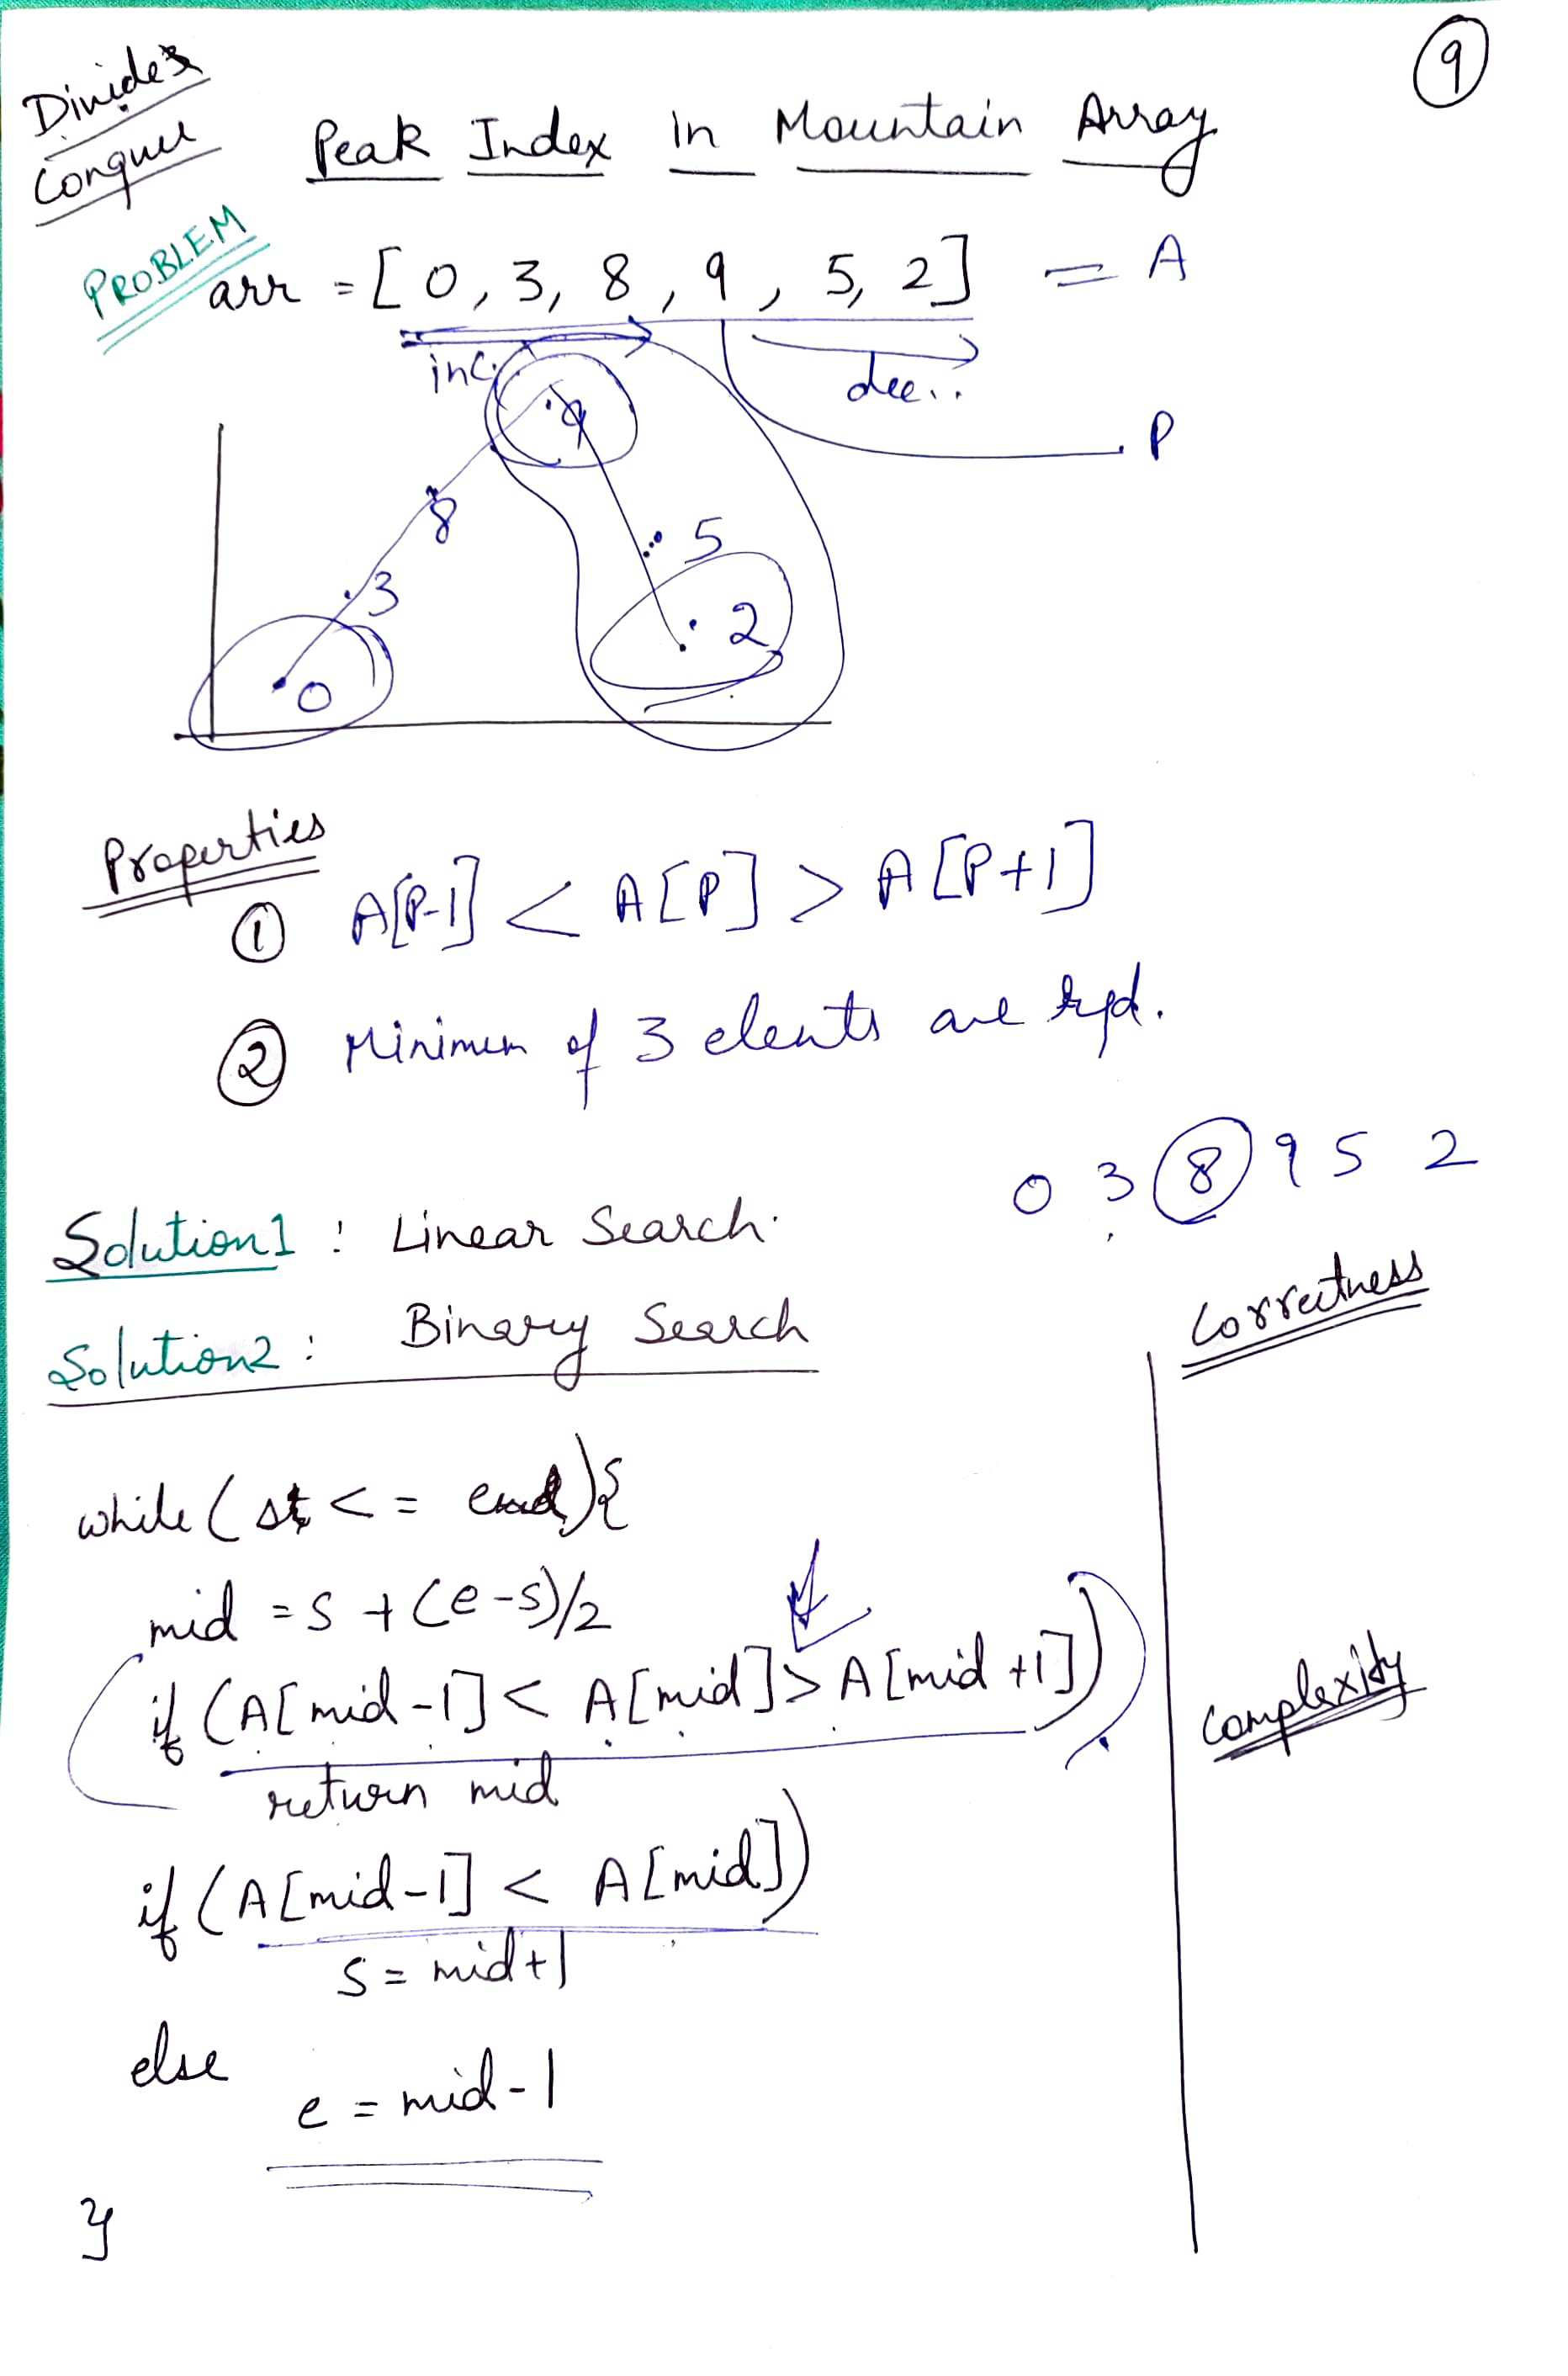 9
Divide &
Conquer
Peak Index in Mountain Array
PROBLEM
arr = [0, 3, 8, 9, 5, 2] = A
inc. dec..
P
9
8
5
3
2
0
Properties
① A[P-1] < A[P] > A[P+1]
② Minimum of 3 elents are rqd.
0 3 8 9 5 2
Solution1 : Linear Search.
Solution2 : Binary Search
Correctness
while (st <= end){
mid = s + (e-s)/2
if (A[mid-1] < A[mid] > A[mid+1])
Complexity
return mid
if (A[mid-1] < A[mid])
s = mid+1
else
e = mid-1
}